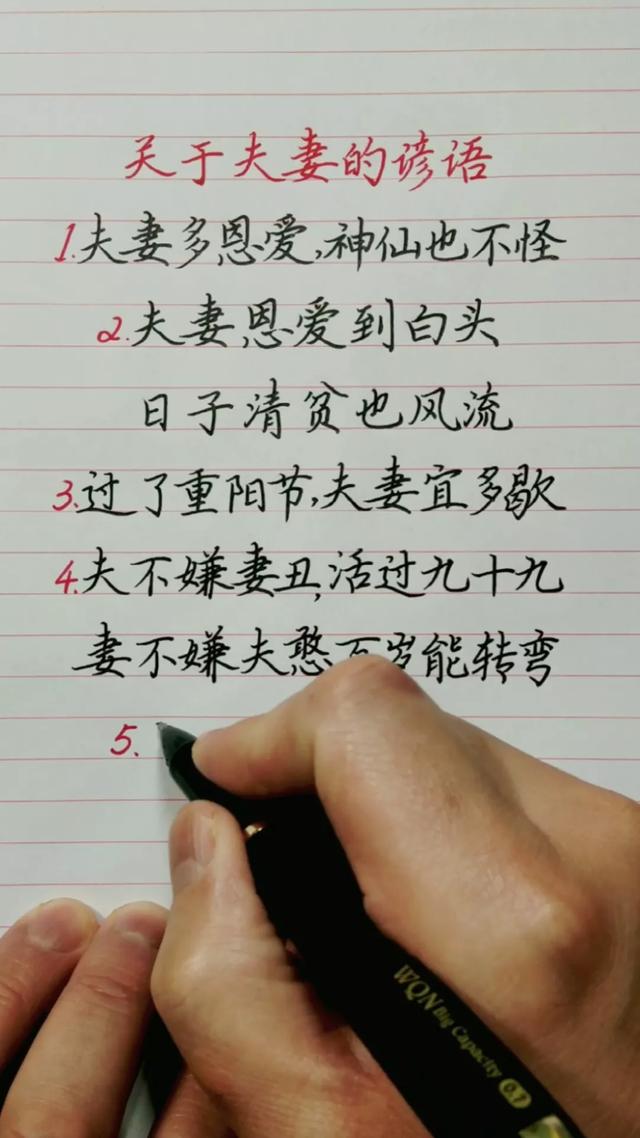 关于夫妻的谚语
1.夫妻多恩爱,神仙也不怪
2.夫妻恩爱到白头
日子清贫也风流
3.过了重阳节,夫妻宜多歇
4.夫不嫌妻丑,活过九十九
妻不嫌夫憨百岁能转弯
5.
WQN Big Capacity 0.7